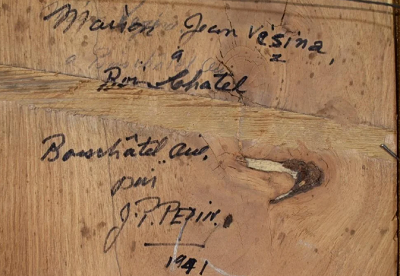 Maison Jean Vésina,
à
Bou Chatel
Bouschâtel
par
J.P. PEPIN.
1941